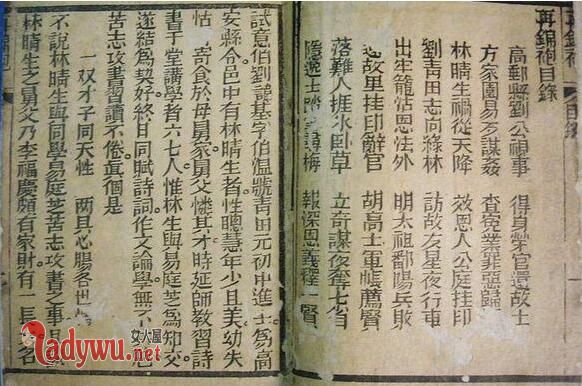 再錦袍目錄
高郵縣劉公視事 得身榮官還故土
方家園易歹謀姦 查冤業罪惡歸
林晴生禍從天降 效恩人公庭挂印
劉青田志向綠林 訪故友星夜行車
出生籠沾恩性外 明太祖鄱陽兵敗
返故里挂印辭官 胡高士軍帳薦賢
落難人捱氷卧草 立奇謀夜奪七省
隱逸士踏 尋梅 報深恩義釋一賢
試意伯劉諱基字伯溫號青田元初中進士爲高
安縣令邑中有林晴生者性聰慧年少且美幼失
怙寄食於母舅家舅父憐其才時延師教習詩
書于堂講學者六七人惟林生與易庭芝爲知交
遂結爲契好終日同賦詩詞作文論學無不
苦志攻書習讀不倦眞個是
一双才子同天性 两具心腸各世
不說林晴生與同學易庭芝苦志攻書之事
林晴生之舅父乃李福慶頗有家財有一長 名
女人屋
ladywu.net